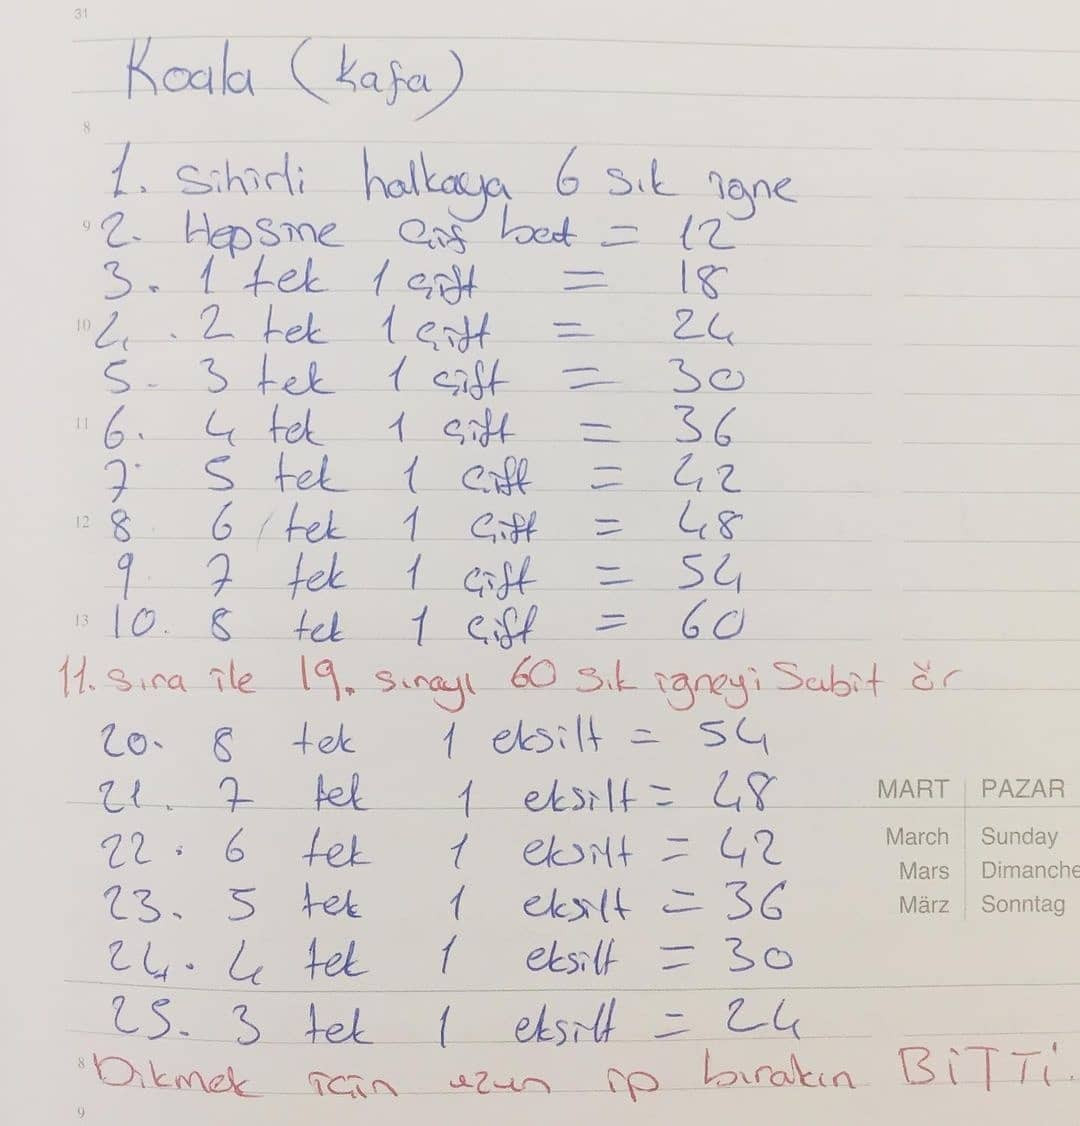 31
Koala (kafa)
8
1. Sihirli halkaya 6 sık iğne
9 2. Hepsine çif bat = 12
3. 1 tek 1 çift = 18
10 4. 2 tek 1 çift = 24
5. 3 tek 1 çift = 30
11 6. 4 tek 1 çift = 36
7. 5 tek 1 çift = 42
12 8 6 tek 1 çift = 48
9 7 tek 1 çift = 54
13 10. 8 tek 1 çift = 60
11. sıra ile 19. sırayı 60 sık iğneyi Sabit ör
20. 8 tek 1 eksilt = 54
21. 7 tek 1 eksilt = 48
MART PAZAR
22. 6 tek 1 eksilt = 42
March Sunday
Mars Dimanche
23. 5 tek 1 eksilt = 36
März Sonntag
24. 4 tek 1 eksilt = 30
25. 3 tek 1 eksilt = 24
8 Dikmek için uzun ip bırakın BİTTİ.
9